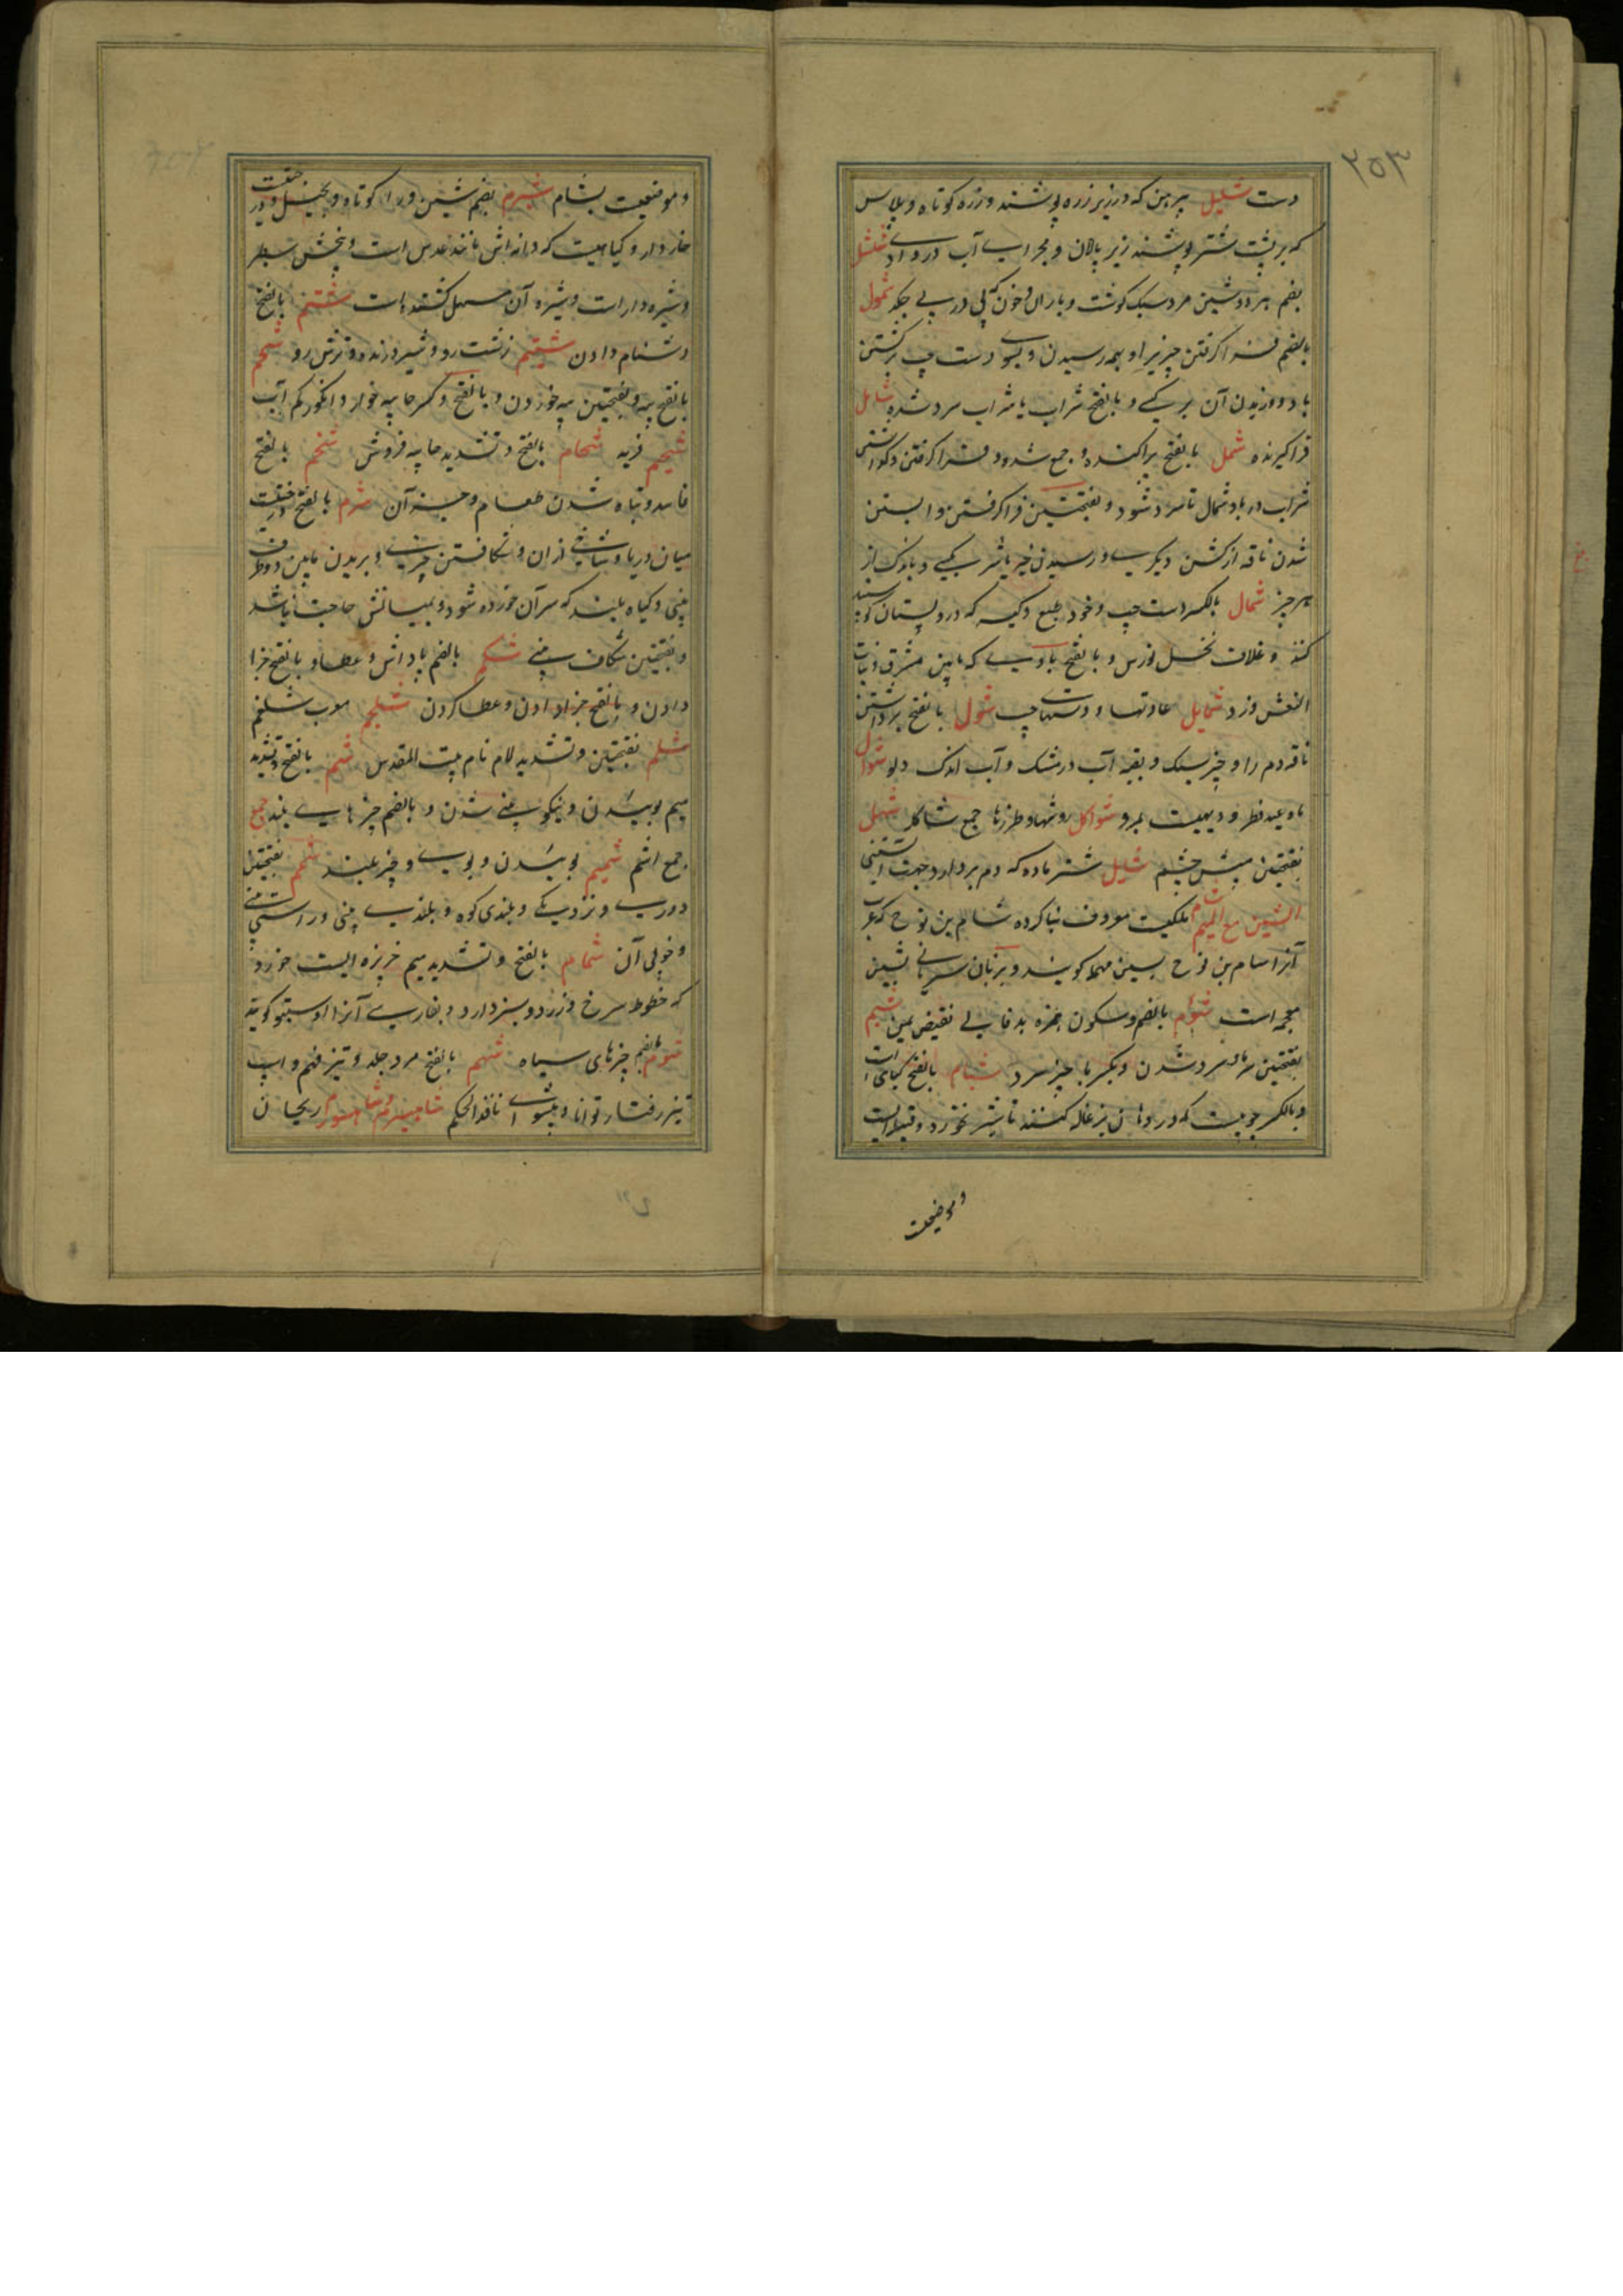 ۲۵۳
دست شلیل پیرهن که در زیر زره پوشند و زره کوتاه و پلاس
که بر پشت شتر پوشند زیر پالان و مجرای آب در وادی شلشل
بضم هر دو شین مرد سبک گوشت و باران و خون که پی در پی چکد شمول
بالضم فرا گرفتن چیزیرا و بهمه رسیدن و بسوی دست چپ برگشتن
باد و وزیدن آن بر کسی و بالفتح شراب یا شراب سرد شده شامل
فرا گیرنده شمل بالفتح پراکنده و جمع شدن و فرا گرفتن و گذاشتن
شراب در باد شمال تا سرد شود و بفتحتین فرا گرفتن و آبستن
شدن ناقه از گشن دیگری و رسیدن خیر یا شر بکسی و اندک از
هر چیز شمال بالکسر دست چپ و خود طبع و کیسه که در پستان گوسپند
کنند و غلاف نخل نورس و بالفتح بادی که مابین مشرق و بنات
النعش وزد شمایل عادتها و دستهای چپ شول بالفتح برداشتن
ناقه دم را و چیز سبک و بقیه آب در مشک و آب اندک دلو شوال
ماه عید فطر و دیهیست بمرو شواکل روشها و طرزها جمع شاکله شهل
بفتحتین میش چشم شایل شتر ماده که دم بردارد جهت آبستنی
الشین مع المیم شام ملکیست معروف بنا کرده شام بن نوح که عرب
آنرا سام بن نوح بسین مهمله گویند و بزبان سریانی بشین
معجمه است شؤم بالضم و سکون همزه بد فالی نقیض یمن شبم
بفتحتین سرما و سرد شدن و بکسر با چیز سرد شبام بالفتح گیاهی است
و بالکسر چوبیست که در دهان بزغاله کنند تا شیر نخورد و قبیله ایست
و موضعیست
و موضعیست بشام شبرم بضم شین و را کوتاه و بخیل و درختیست
خاردار و گیاهیست که دانه اش مانند عدس است و بیخش سطبر
و شیره دار است و شیره آن مسهل کشنده است شتم بالفتح
دشنام دادن شتیم زشت رو و شیر درنده و ترش رو شحم
بالفتح پیه و بفتحتین پیه خوردن و بالفتح و کسر حا پیه خوار و انگور کم آب
شحیم فربه شحام بالفتح و تشدید حا پیه فروش شخم بالفتح
فاسد و تباه شدن طعام و جز آن شرم بالفتح درختیست
میان دریا و شاخی از آن و شکافتن چیزی و بریدن مابین دو طرف
بینی و گیاه بلند که سر آن خورده شود و بمیانش حاجت نباشد
و بفتحتین شکاف بینی شکم بالضم پاداش و عطا و بالفتح جزا
دادن و بالفتح جزا دادن و عطا کردن شلجم معرب شلغم
شلم بفتحتین و تشدید لام نام بیت المقدس شم بالفتح و تشدید
میم بوییدن و نیکو بینی شدن و بالضم چیزهای بلند جمع
جمع اشم شمیم بوییدن و بوی و چیز بلند شمم بفتحتین
دوری و نزدیکی و بلندی کوه و بلندی بینی و راستی بینی
و خوبی آن شمام بالفتح و تشدید میم خربزه ایست خورد
که خطوط سرخ و زرد و سبز دارد و بفارسی آنرا دستنبو گویند
شوم بالضم چیزهای سیاه شهم بالفتح مرد جلد و تیز فهم و اسپ
تیز رفتار توانا و پیشوای نافذ الحکم شاهسپرم و شاهسفرم ریحان